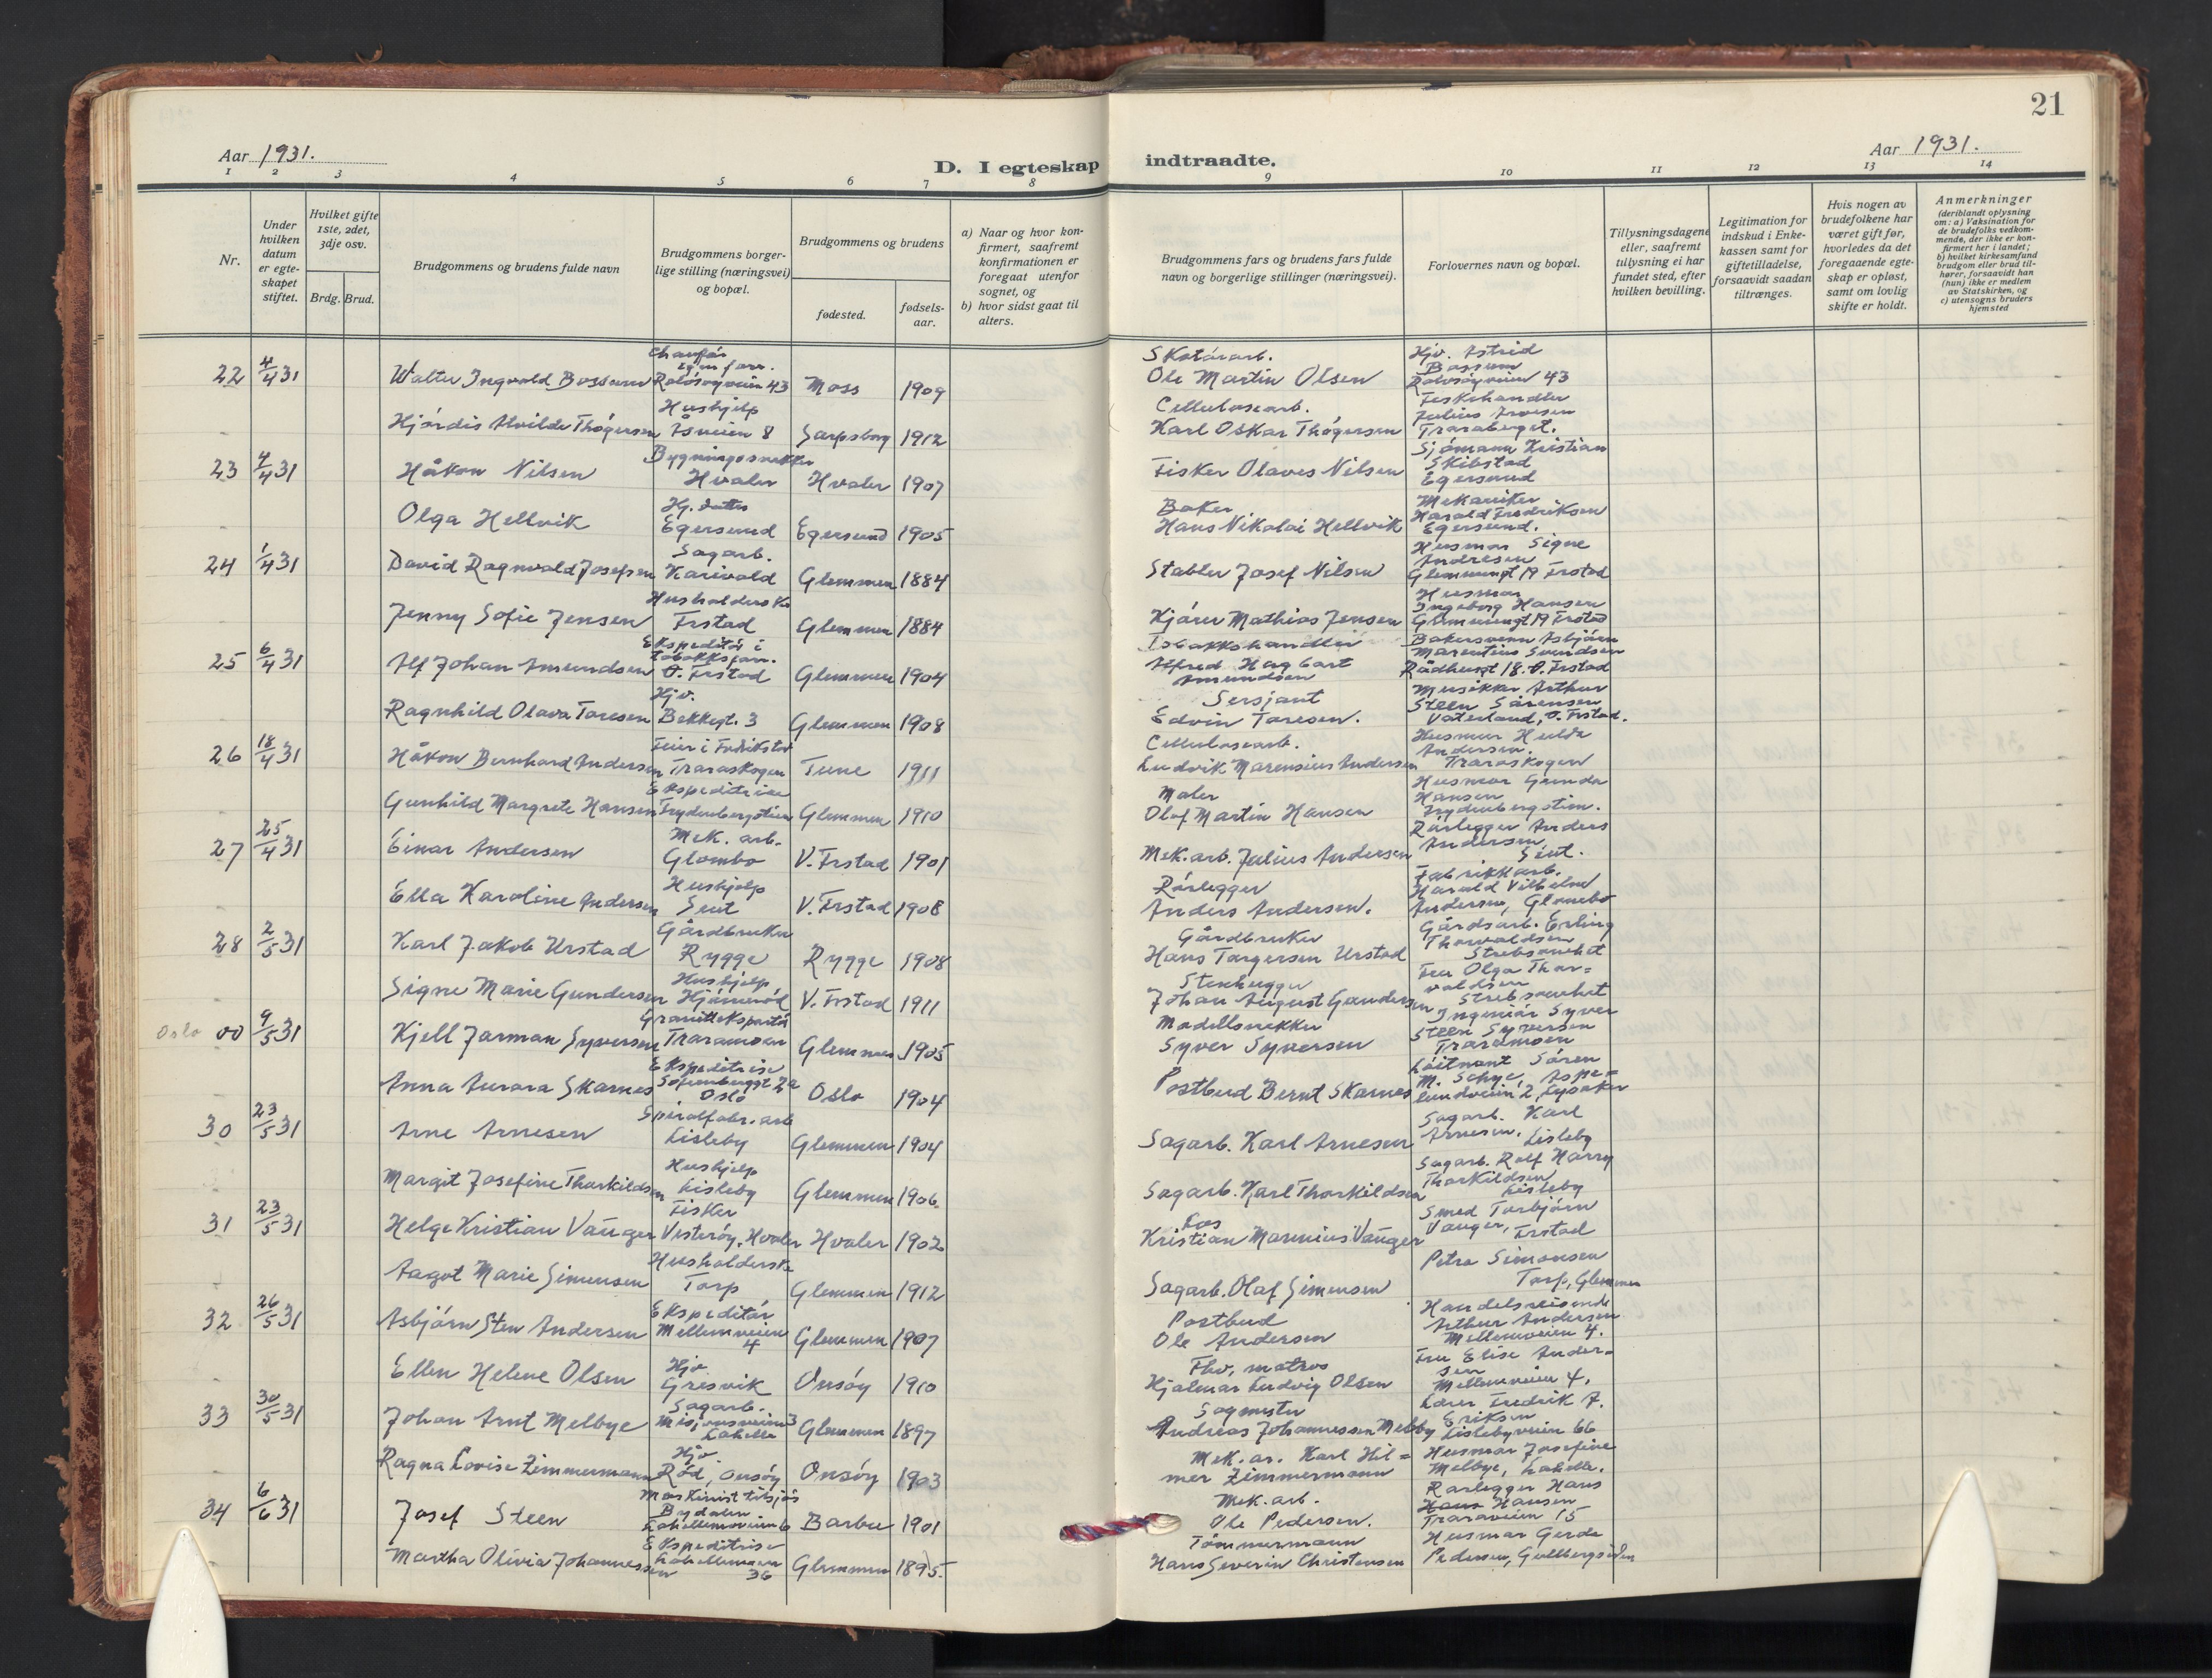 21
Aar 1931.
D. I egteskap indtraadte.
Aar 1931.
1 2 3 4 5 6 7 8 9 10 11 12 13 14
Nr.
Under hvilken datum er egteskapet stiftet.
Hvilket gifte 1ste, 2det, 3dje osv.
Brdg. Brud.
Brudgommens og brudens fulde navn
Brudgommens borgerlige stilling (næringsvei) og bopæl.
Brudgommens og brudens
fødested.
fødselsaar.
a) Naar og hvor konfirmert, saafremt konfirmationen er foregaat utenfor sognet, og
b) hvor sidst gaat til alters.
Brudgommens fars og brudens fars fulde navn og borgerlige stillinger (næringsvei).
Forlovernes navn og bopæl.
Tillysningsdagene eller, saafremt tillysning ei har fundet sted, efter hvilken bevilling.
Legitimation for indskud i Enkekassen samt for giftetilladelse, forsaavidt saadan tiltrænges.
Hvis nogen av brudefolkene har været gift før, hvorledes da det foregaaende egteskap er opløst, samt om lovlig skifte er holdt.
Anmerkninger (deriblandt oplysning om: a) Vaksination for de brudefolks vedkommende, der ikke er konfirmert her i landet; b) hvilket kirkesamfund brudgom eller brud tilhører, forsaavidt han (hun) ikke er medlem av Statskirken, og c) utensogns bruders hjemsted
22 4/4 31 Walter Ingvald Bossum Moss 1909 Skotöiarb. Ole Martin Olsen Hjv. Astrid Bossum Rolvsöyveien 43
Hjördis Alvilde Thögersen Hushjelp Åsveien 8 Sarpsborg 1912 Cellulosearb. Karl Oskar Thögersen Fiskehandler Traraberget.
23 4/4 31 Håkon Nilsen Bygningssnekker Hvaler Hvaler 1907 Fisker Olaves Nilsen Sjömann Kristian Skibstad Egersund
Olga Hellvik Hj. datter Egersund Egersund 1905 Baker Hans Nikolai Hellvik Mekaniker Harald Fredriksen Egersund.
24 1/4 31 David Ragnvald Josefsen Sagarb. Karivold Glemmen 1884 Stabler Josef Nilsen Husmor Signe Andresen Glemmengt 19 Frstad
Jenny Sofie Jensen Husholderske Frstad Glemmen 1884 Kjörer Mathias Jensen Husmor Ingeborg Hansen Glemmengt 19 Frstad
25 6/4 31 Alf Johan Amundsen Ekspeditör i tobakksforr. Ö. Frstad Glemmen 1904 Tobakkshandler Alfred Hagbart Amundsen Bakersvenn Asbjörn Marentius Svendsen Rådhusgt 18. Ö. Frstad
Ragnhild Olava Toresen Hjv. Bekkegt. 3 Glemmen 1908 Sersjant Edvin Toresen. Musikker Arthur Steen Sörensen Vaterland, Ö. Frstad.
26 18/4 31 Håkon Bernhard Andersen Feier i Fredrikstad Traraskogen Tune 1911 Cellulosearb. Ludvik Marensius Andersen Husmor Hulda Andersen. Traraskogen
Gunhild Margrete Hansen Ekspeditrise Frydenbergstien Glemmen 1910 Maler Olaf Martin Hansen Husmor Gunda Hansen Frydenbergstien.
27 25/4 31 Einar Andersen Mek. arb. Glombo V. Frstad 1901 Mek. arb. Julius Andersen Rörlegger Anders Andersen, Seut.
Ella Karoline Andersen Hushjelp Seut V. Frstad 1908 Rörlegger Anders Andersen. Fabrikkarb. Harald Vilhelm Andersen, Glombo
28 2/5 31 Karl Jakob Urstad Gårdbruker Rygge Rygge 1908 Gårdbruker Hans Torgersen Urstad Gårdsarb. Erling Thorvaldsen Strebsomhet
Signe Marie Gundersen Hushjelp V. Frstad 1911 Stenhugger Johan August Gundersen Fru Olga Thorvaldsen Strebsomhet
Oslo 00 9/5 31 Kjell Jarman Syversen Granitteksportör Traramoen Glemmen 1905 Modellsnekker Syver Syversen Ingeniör Syver Steen Syversen Traramoen
Anna Aurora Skarnes Ekspeditrise Sofienberggt 2a Oslo Oslo 1904 Postbud Bernt Skarnes Löitnant Sören M. Schye, Aspelundveien 2, Lysaker
30 23/5 31 Arne Arnesen Spiralfabr. arb Lisleby Glemmen 1904 Sagarb. Karl Arnesen Sagarb. Karl Arnesen. Lisleby
Margit Josefine Thorkildsen Hushjelp Lisleby Glemmen 1906 Sagarb. Karl Thorkildsen Sagarb. Rolf Harry Thorkildsen Lisleby
31 23/5 31 Helge Kristian Vauger Fisker Vesteröy, Hvaler Hvaler 1902 Los Kristian Marinius Vauger Smed Torbjörn Vauger, Frstad
Aagot Marie Simensen Husholderske Torp Glemmen 1912 Sagarb. Olaf Simensen Petra Simonsen Torp, Glemmen
32 26/5 31 Asbjörn Sten Andersen Ekspeditör Mellemveien 4 Glemmen 1907 Postbud Ole Andersen Handelsreisende Arthur Andersen Mellemveien 4.
Ellen Helene Olsen Hjv Gresvik Onsöy 1910 Fhv. matros Hjalmar Ludvig Olsen Fru Elise Andersen Mellemveien 4.
33 30/5 31 Johan Arnt Melbye Sagarb. Misjonsveien 3 Lahelle Glemmen 1897 Sagmester Andreas Johannessen Melby Lærer Fredrik F. Eriksen Lislebyveien 66
Ragna Lovise Zimmermann Hjv. Röd, Onsöy Onsöy 1903 Mek. ar. Karl Hilmer Zimmermann Husmor Josefine Melbye, Lahelle.
34 6/6 31 Josef Steen Maskinist tilsjös Lahellemoveien 6 Barbu 1901 Mek. arb. Ole Pedersen. Rörlegger Hans Hans Hansen Traraveien 15
Martha Olivia Johannessen Ekspeditrise 36 Glemmen 1895. Tömmermann Hans Severin Christensen Husmor Gerda Pedersen, Gullbergsiden